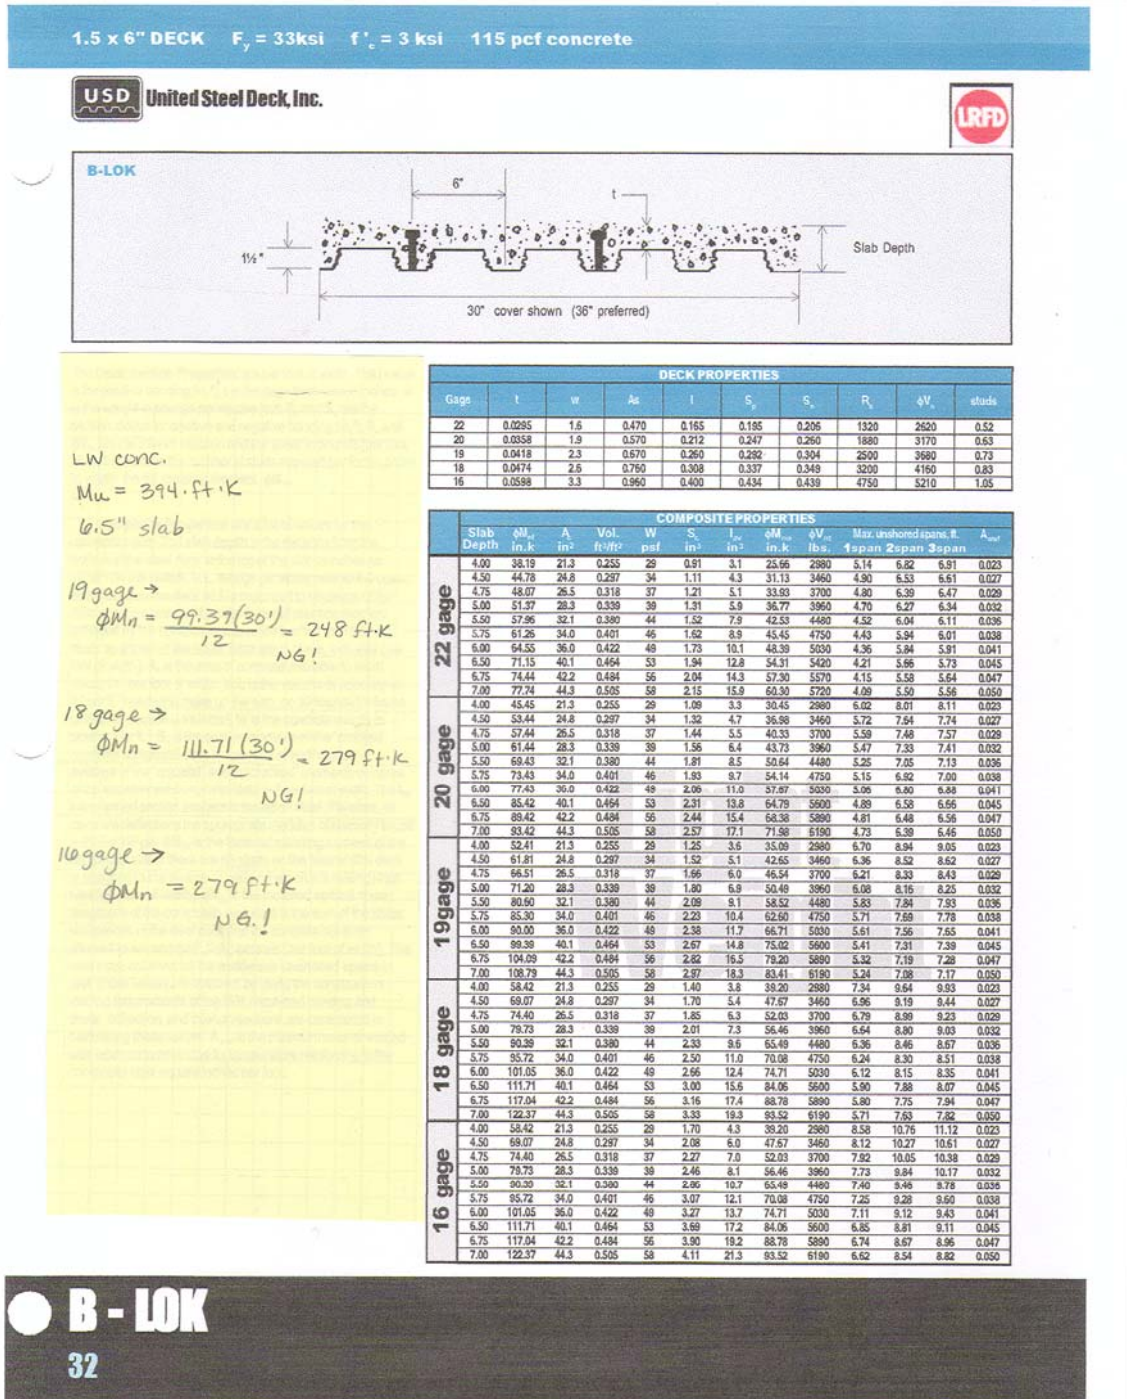 1.5 x 6" DECK F_y = 33ksi f'_c = 3 ksi 115 pcf concrete
USD United Steel Deck, Inc.
LRFD
B-LOK
6"
t
1½"
Slab Depth
30" cover shown (36" preferred)
LW conc.
Mu = 394.ft.K
6.5" slab
19 gage →
ϕMn = 99.39(30') / 12 = 248 ft.K
NG!
18 gage →
ϕMn = 111.71(30') / 12 = 279 ft.K
NG!
16 gage →
ϕMn = 279 ft.K
NG.!
DECK PROPERTIES
Gage t w As I S_p S_n R_b ϕV_n studs
22 0.0295 1.6 0.470 0.165 0.195 0.206 1320 2620 0.52
20 0.0358 1.9 0.570 0.212 0.247 0.260 1880 3170 0.63
19 0.0418 2.3 0.670 0.260 0.292 0.304 2500 3680 0.73
18 0.0474 2.6 0.760 0.308 0.337 0.349 3200 4160 0.83
16 0.0598 3.3 0.960 0.400 0.434 0.439 4750 5210 1.05
COMPOSITE PROPERTIES
Slab Vol. W Max. unshored spans, ft.
Depth in.k in² ft³/ft² psf in³ in⁴ in.k lbs. 1span 2span 3span
22 gage
4.00 38.19 21.3 0.255 29 0.91 3.1 25.66 2980 5.14 6.82 6.91 0.023
4.50 44.78 24.8 0.297 34 1.11 4.3 31.13 3460 4.90 6.53 6.61 0.027
4.75 48.07 26.5 0.318 37 1.21 5.1 33.93 3700 4.80 6.39 6.47 0.029
5.00 51.37 28.3 0.339 39 1.31 5.9 36.77 3960 4.70 6.27 6.34 0.032
5.50 57.96 32.1 0.380 44 1.52 7.9 42.53 4480 4.52 6.04 6.11 0.036
5.75 61.26 34.0 0.401 46 1.62 8.9 45.45 4750 4.43 5.94 6.01 0.038
6.00 64.55 36.0 0.422 49 1.73 10.1 48.39 5030 4.36 5.84 5.91 0.041
6.50 71.15 40.1 0.464 53 1.94 12.8 54.31 5420 4.21 5.66 5.73 0.045
6.75 74.44 42.2 0.484 56 2.04 14.3 57.30 5570 4.15 5.58 5.64 0.047
7.00 77.74 44.3 0.505 58 2.15 15.9 60.30 5720 4.09 5.50 5.56 0.050
20 gage
4.00 45.45 21.3 0.255 29 1.09 3.3 30.45 2980 6.02 8.01 8.11 0.023
4.50 53.44 24.8 0.297 34 1.32 4.7 36.98 3460 5.72 7.64 7.74 0.027
4.75 57.44 26.5 0.318 37 1.44 5.5 40.33 3700 5.59 7.48 7.57 0.029
5.00 61.44 28.3 0.339 39 1.56 6.4 43.73 3960 5.47 7.33 7.41 0.032
5.50 69.43 32.1 0.380 44 1.81 8.5 50.64 4480 5.25 7.05 7.13 0.036
5.75 73.43 34.0 0.401 46 1.93 9.7 54.14 4750 5.15 6.92 7.00 0.038
6.00 77.43 36.0 0.422 49 2.06 11.0 57.67 5030 5.06 6.80 6.88 0.041
6.50 85.42 40.1 0.464 53 2.31 13.8 64.79 5600 4.89 6.58 6.66 0.045
6.75 89.42 42.2 0.484 56 2.44 15.4 68.38 5890 4.81 6.48 6.56 0.047
7.00 93.42 44.3 0.505 58 2.57 17.1 71.98 6190 4.73 6.39 6.46 0.050
19gage
4.00 52.41 21.3 0.255 29 1.25 3.6 35.09 2980 6.70 8.94 9.05 0.023
4.50 61.81 24.8 0.297 34 1.52 5.1 42.65 3460 6.36 8.52 8.62 0.027
4.75 66.51 26.5 0.318 37 1.66 6.0 46.54 3700 6.21 8.33 8.43 0.029
5.00 71.20 28.3 0.339 39 1.80 6.9 50.49 3960 6.08 8.16 8.25 0.032
5.50 80.60 32.1 0.380 44 2.09 9.1 58.52 4480 5.83 7.84 7.93 0.036
5.75 85.30 34.0 0.401 46 2.23 10.4 62.60 4750 5.71 7.69 7.78 0.038
6.00 90.00 36.0 0.422 49 2.38 11.7 66.71 5030 5.61 7.56 7.65 0.041
6.50 99.39 40.1 0.464 53 2.67 14.8 75.02 5600 5.41 7.31 7.39 0.045
6.75 104.09 42.2 0.484 56 2.82 16.5 79.20 5890 5.32 7.19 7.28 0.047
7.00 108.79 44.3 0.505 58 2.97 18.3 83.41 6190 5.24 7.08 7.17 0.050
18 gage
4.00 58.42 21.3 0.255 29 1.40 3.8 39.20 2980 7.34 9.64 9.93 0.023
4.50 69.07 24.8 0.297 34 1.70 5.4 47.67 3460 6.96 9.19 9.44 0.027
4.75 74.40 26.5 0.318 37 1.85 6.3 52.03 3700 6.79 8.99 9.23 0.029
5.00 79.73 28.3 0.339 39 2.01 7.3 56.46 3960 6.64 8.80 9.03 0.032
5.50 90.39 32.1 0.380 44 2.33 9.6 65.49 4480 6.36 8.46 8.67 0.036
5.75 95.72 34.0 0.401 46 2.50 11.0 70.08 4750 6.24 8.30 8.51 0.038
6.00 101.05 36.0 0.422 49 2.66 12.4 74.71 5030 6.12 8.15 8.35 0.041
6.50 111.71 40.1 0.464 53 3.00 15.6 84.06 5600 5.90 7.88 8.07 0.045
6.75 117.04 42.2 0.484 56 3.16 17.4 88.78 5890 5.80 7.75 7.94 0.047
7.00 122.37 44.3 0.505 58 3.33 19.3 93.52 6190 5.71 7.63 7.82 0.050
16 gage
4.00 58.42 21.3 0.255 29 1.70 4.3 39.20 2980 8.58 10.76 11.12 0.023
4.50 69.07 24.8 0.297 34 2.08 6.0 47.67 3460 8.12 10.27 10.61 0.027
4.75 74.40 26.5 0.318 37 2.27 7.0 52.03 3700 7.92 10.05 10.38 0.029
5.00 79.73 28.3 0.339 39 2.46 8.1 56.46 3960 7.73 9.84 10.17 0.032
5.50 90.39 32.1 0.380 44 2.86 10.7 65.49 4480 7.40 9.46 9.78 0.036
5.75 95.72 34.0 0.401 46 3.07 12.1 70.08 4750 7.25 9.28 9.60 0.038
6.00 101.05 36.0 0.422 49 3.27 13.7 74.71 5030 7.11 9.12 9.43 0.041
6.50 111.71 40.1 0.464 53 3.69 17.2 84.06 5600 6.85 8.81 9.11 0.045
6.75 117.04 42.2 0.484 56 3.90 19.2 88.78 5890 6.74 8.67 8.96 0.047
7.00 122.37 44.3 0.505 58 4.11 21.3 93.52 6190 6.62 8.54 8.82 0.050
B - LOK
32